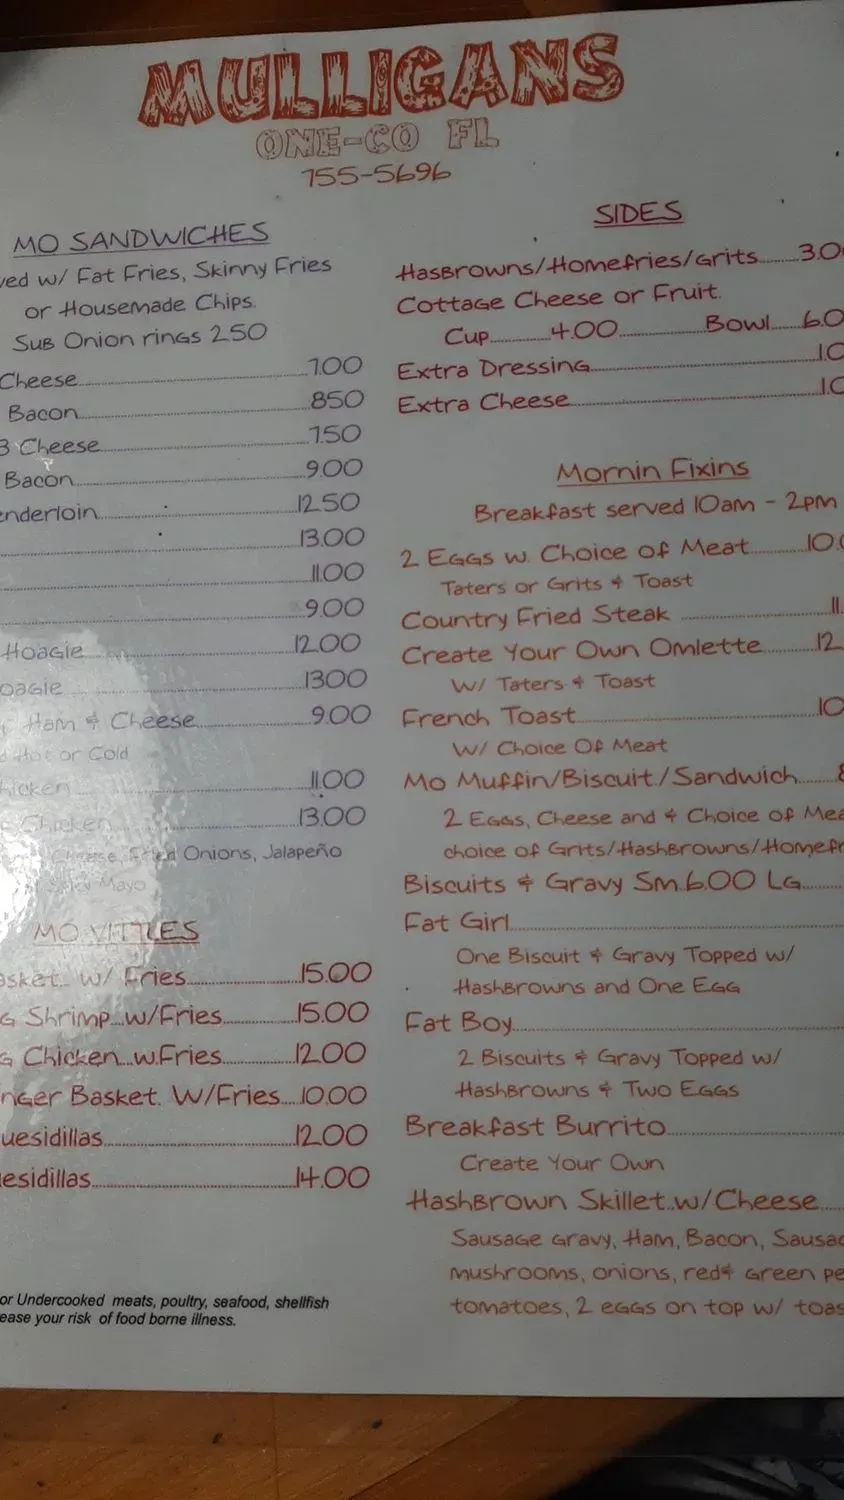 MULLIGANS
ONE-CO FL
755-5696
MO SANDWICHES
ved w/ Fat Fries, Skinny Fries
or Housemade Chips.
Sub Onion rings 2.50
Cheese 7.00
Bacon 8.50
3 Cheese 7.50
Bacon 9.00
enderloin 12.50
13.00
11.00
9.00
Hoagie 12.00
oagie 13.00
Ham & Cheese 9.00
Hot or Cold
hicken 11.00
Chicken 13.00
Cheese, Fried Onions, Jalapeño
Mayo
MO VITTLES
asket.. w/ Fries 15.00
G Shrimp...w/Fries 15.00
G Chicken...w.Fries 12.00
nger Basket. W/Fries 10.00
uesidillas 12.00
esidillas 14.00
or Undercooked meats, poultry, seafood, shellfish
ease your risk of food borne illness.
SIDES
Hasbrowns/Homefries/Grits 3.0
Cottage Cheese or Fruit.
Cup 4.00 Bowl 6.0
Extra Dressing 1.0
Extra Cheese 1.0
Mornin Fixins
Breakfast served 10am - 2pm
2 Eggs w. Choice of Meat 10.0
Taters or Grits & Toast
Country Fried Steak 11.
Create Your Own Omlette 12.
W/ Taters & Toast
French Toast 10
W/ Choice Of Meat
Mo Muffin/Biscuit/Sandwich
2 Eggs, Cheese and & Choice of Mea
choice of Grits/Hashbrowns/Homefr
Biscuits & Gravy Sm.6.00 LG
Fat Girl
One Biscuit & Gravy Topped w/
Hashbrowns and One Egg
Fat Boy
2 Biscuits & Gravy Topped w/
Hashbrowns & Two Eggs
Breakfast Burrito
Create Your Own
Hashbrown Skillet..w/Cheese
Sausage gravy, Ham, Bacon, Sausag
mushrooms, onions, red& green pe
tomatoes, 2 eggs on top w/ toas